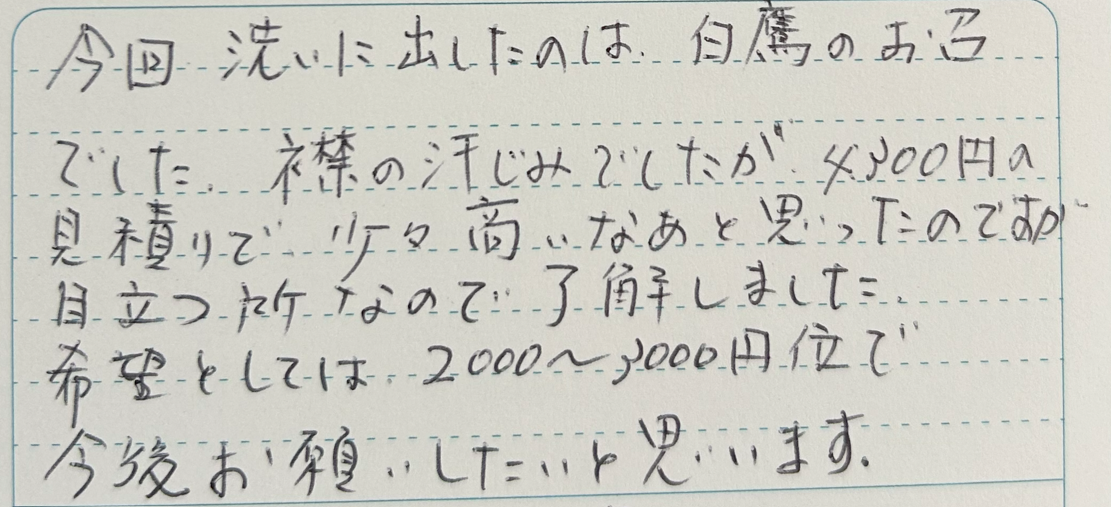 今回 洗いに出したのは、白鷹のお召
でした。衿襟の汗じみでしたが、4,300円の
見積りで、少々高いなあと思ったのですが
目立つ所なので了解しました。
希望としては、2000〜3000円位で
今後お願いしたいと思います。